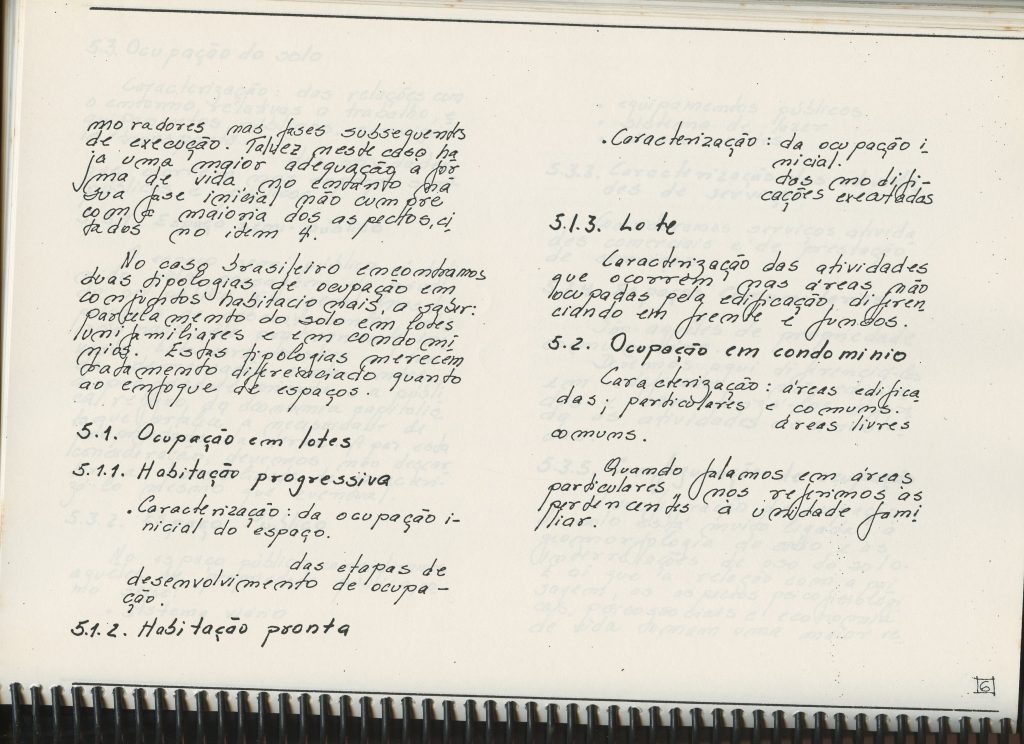 moradores nas fases subsequentes
de execução. Talvez neste caso ha
ja uma maior adequação a for
ma de vida no entanto na
sua fase inicial não cumpre
com a maioria dos aspectos, ci
tados no item 4.
No caso brasileiro encontramos
duas tipologias de ocupação em
conjuntos habitacionais, a saber:
parcelamento do solo em lotes
unifamiliares e em condomi
nios. Estas tipologias merecem
tratamento diferenciado quanto
ao enfoque de espaços.
5.1. Ocupação em lotes
5.1.1. Habitação progressiva
. Caracterização: da ocupação i-
nicial do espaço.
das etapas de
desenvolvimento de ocupa-
ção
5.1.2. Habitação pronta
. Caracterização: da ocupação i-
nicial.
das modifi-
cações executadas
5.1.3. Lote
Caracterização das atividades
que ocorrem nas áreas não
ocupadas pela edificação, diferen
ciando em frente e fundos.
5.2. Ocupação em condominio
Caracterização: áreas edifica
das; particulares e comuns.
áreas livres
comuns.
Quando falamos em áreas
particulares, nos referimos às
pertencentes à unidade fami
liar.
6